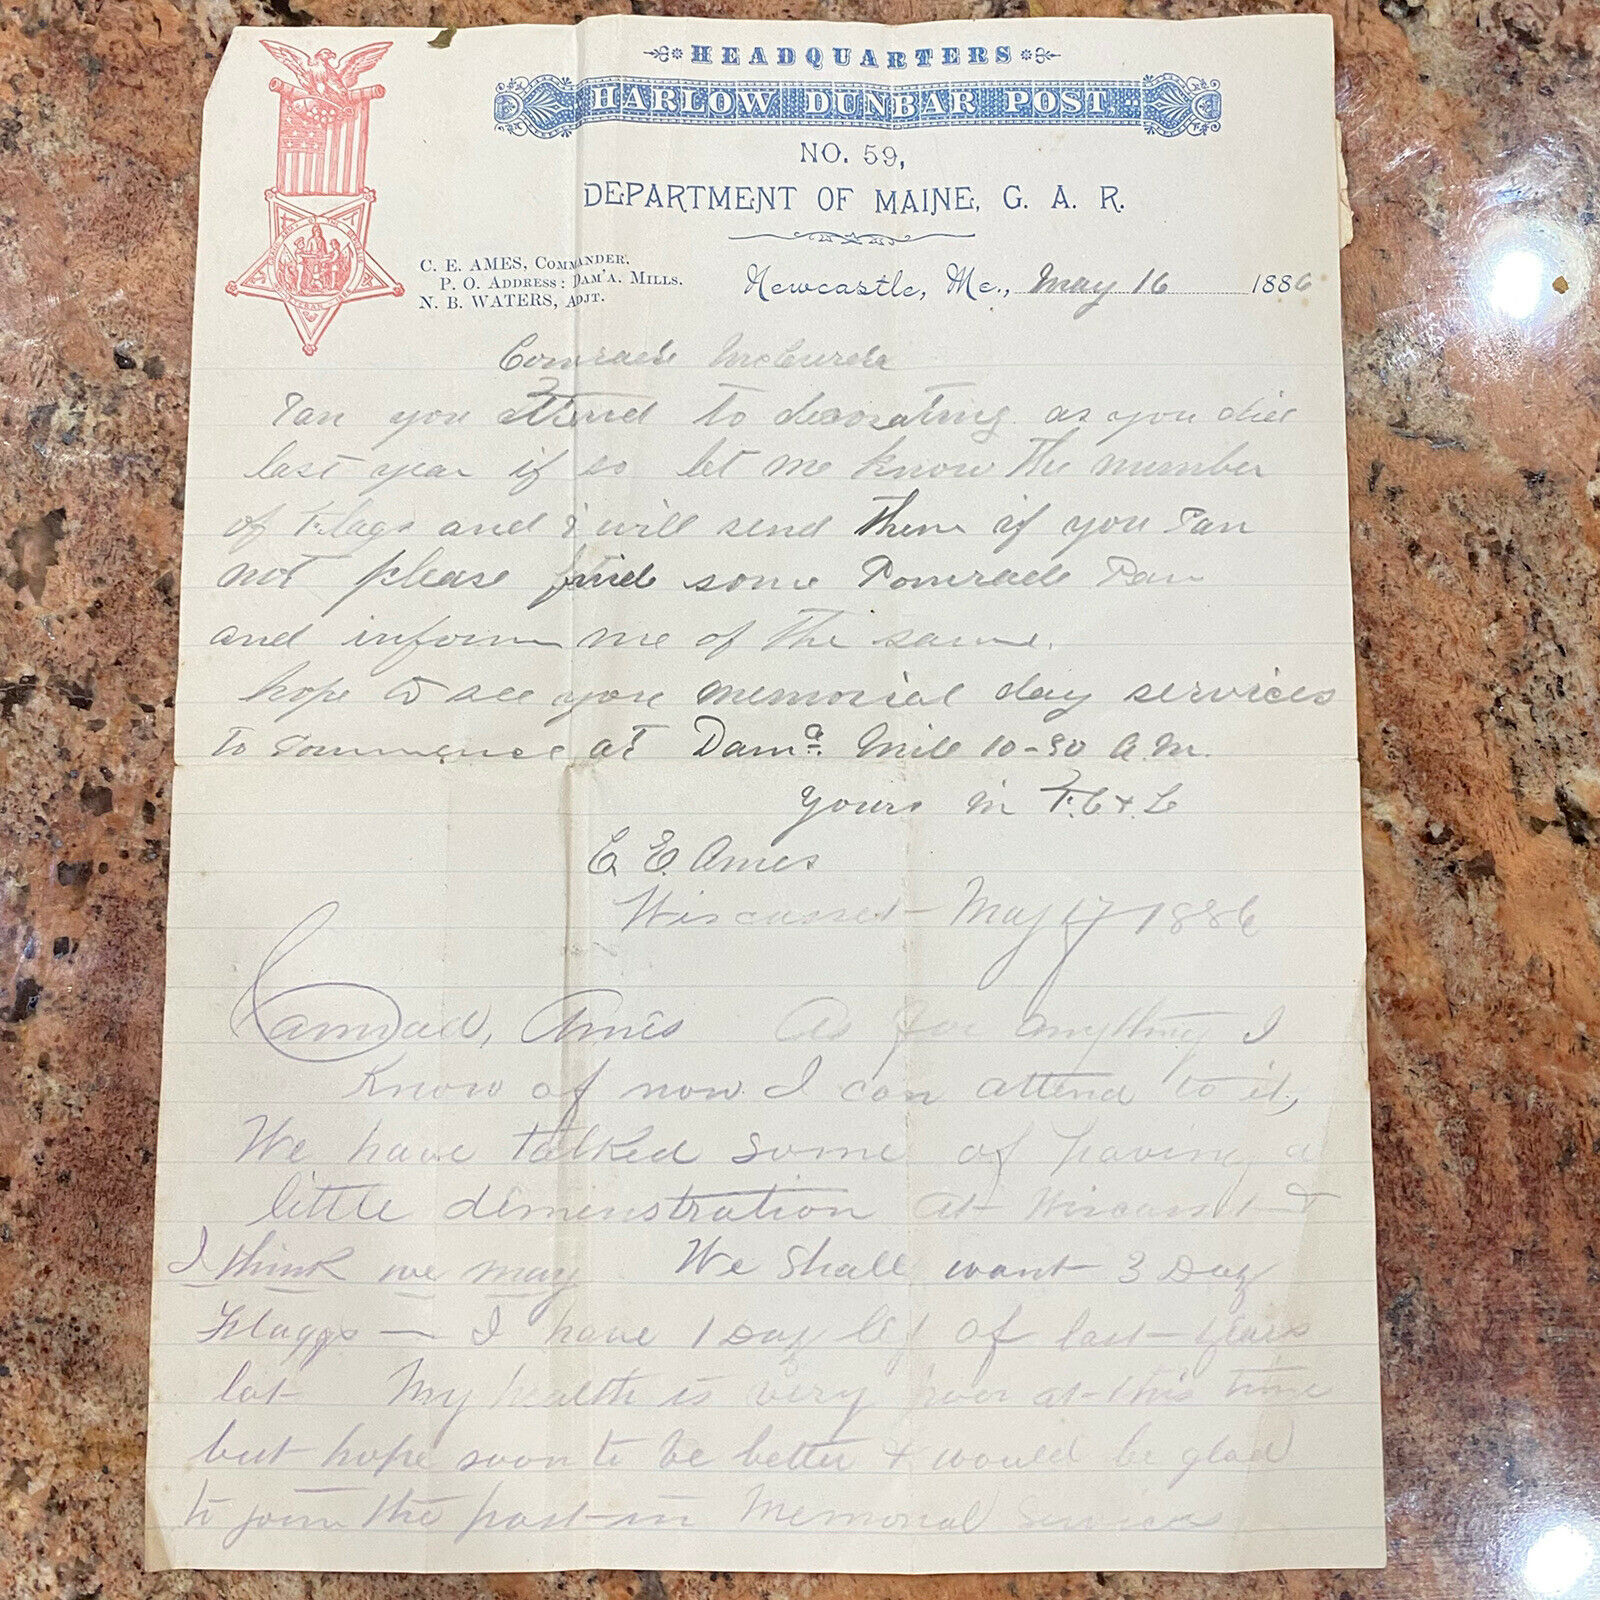 HEADQUARTERS
HARLOW DUNBAR POST
NO. 59,
DEPARTMENT OF MAINE, G. A. R.
C. E. AMES, COMMANDER.
P. O. ADDRESS: DAM'A. MILLS.
N. B. WATERS, ADJT.
Newcastle, Me., May 16 1886
Comrade McCurda
Can you attend to decorating as you did
last year if so let me know the number
of Flags and i will send them if you Can
not please find some Comrade Can
and inform me of the same.
hope to see you memorial day services
to Commence at Dama. Mill 10-30 A.M.
Yours in F.C & L
C. E. Ames
Wiscasset - May 17 1886
Camrad, Ames As for anything I
Know of now I can attend to it,
We have talked some of having a
little demenstration at Wiscasset &
I think we may We shall want 3 Doz
Flaggs — I have 1 Doz left of last years
lot My health is very poor at this time
but hope soon to be better & would be glad
to join the post in Memorial Services